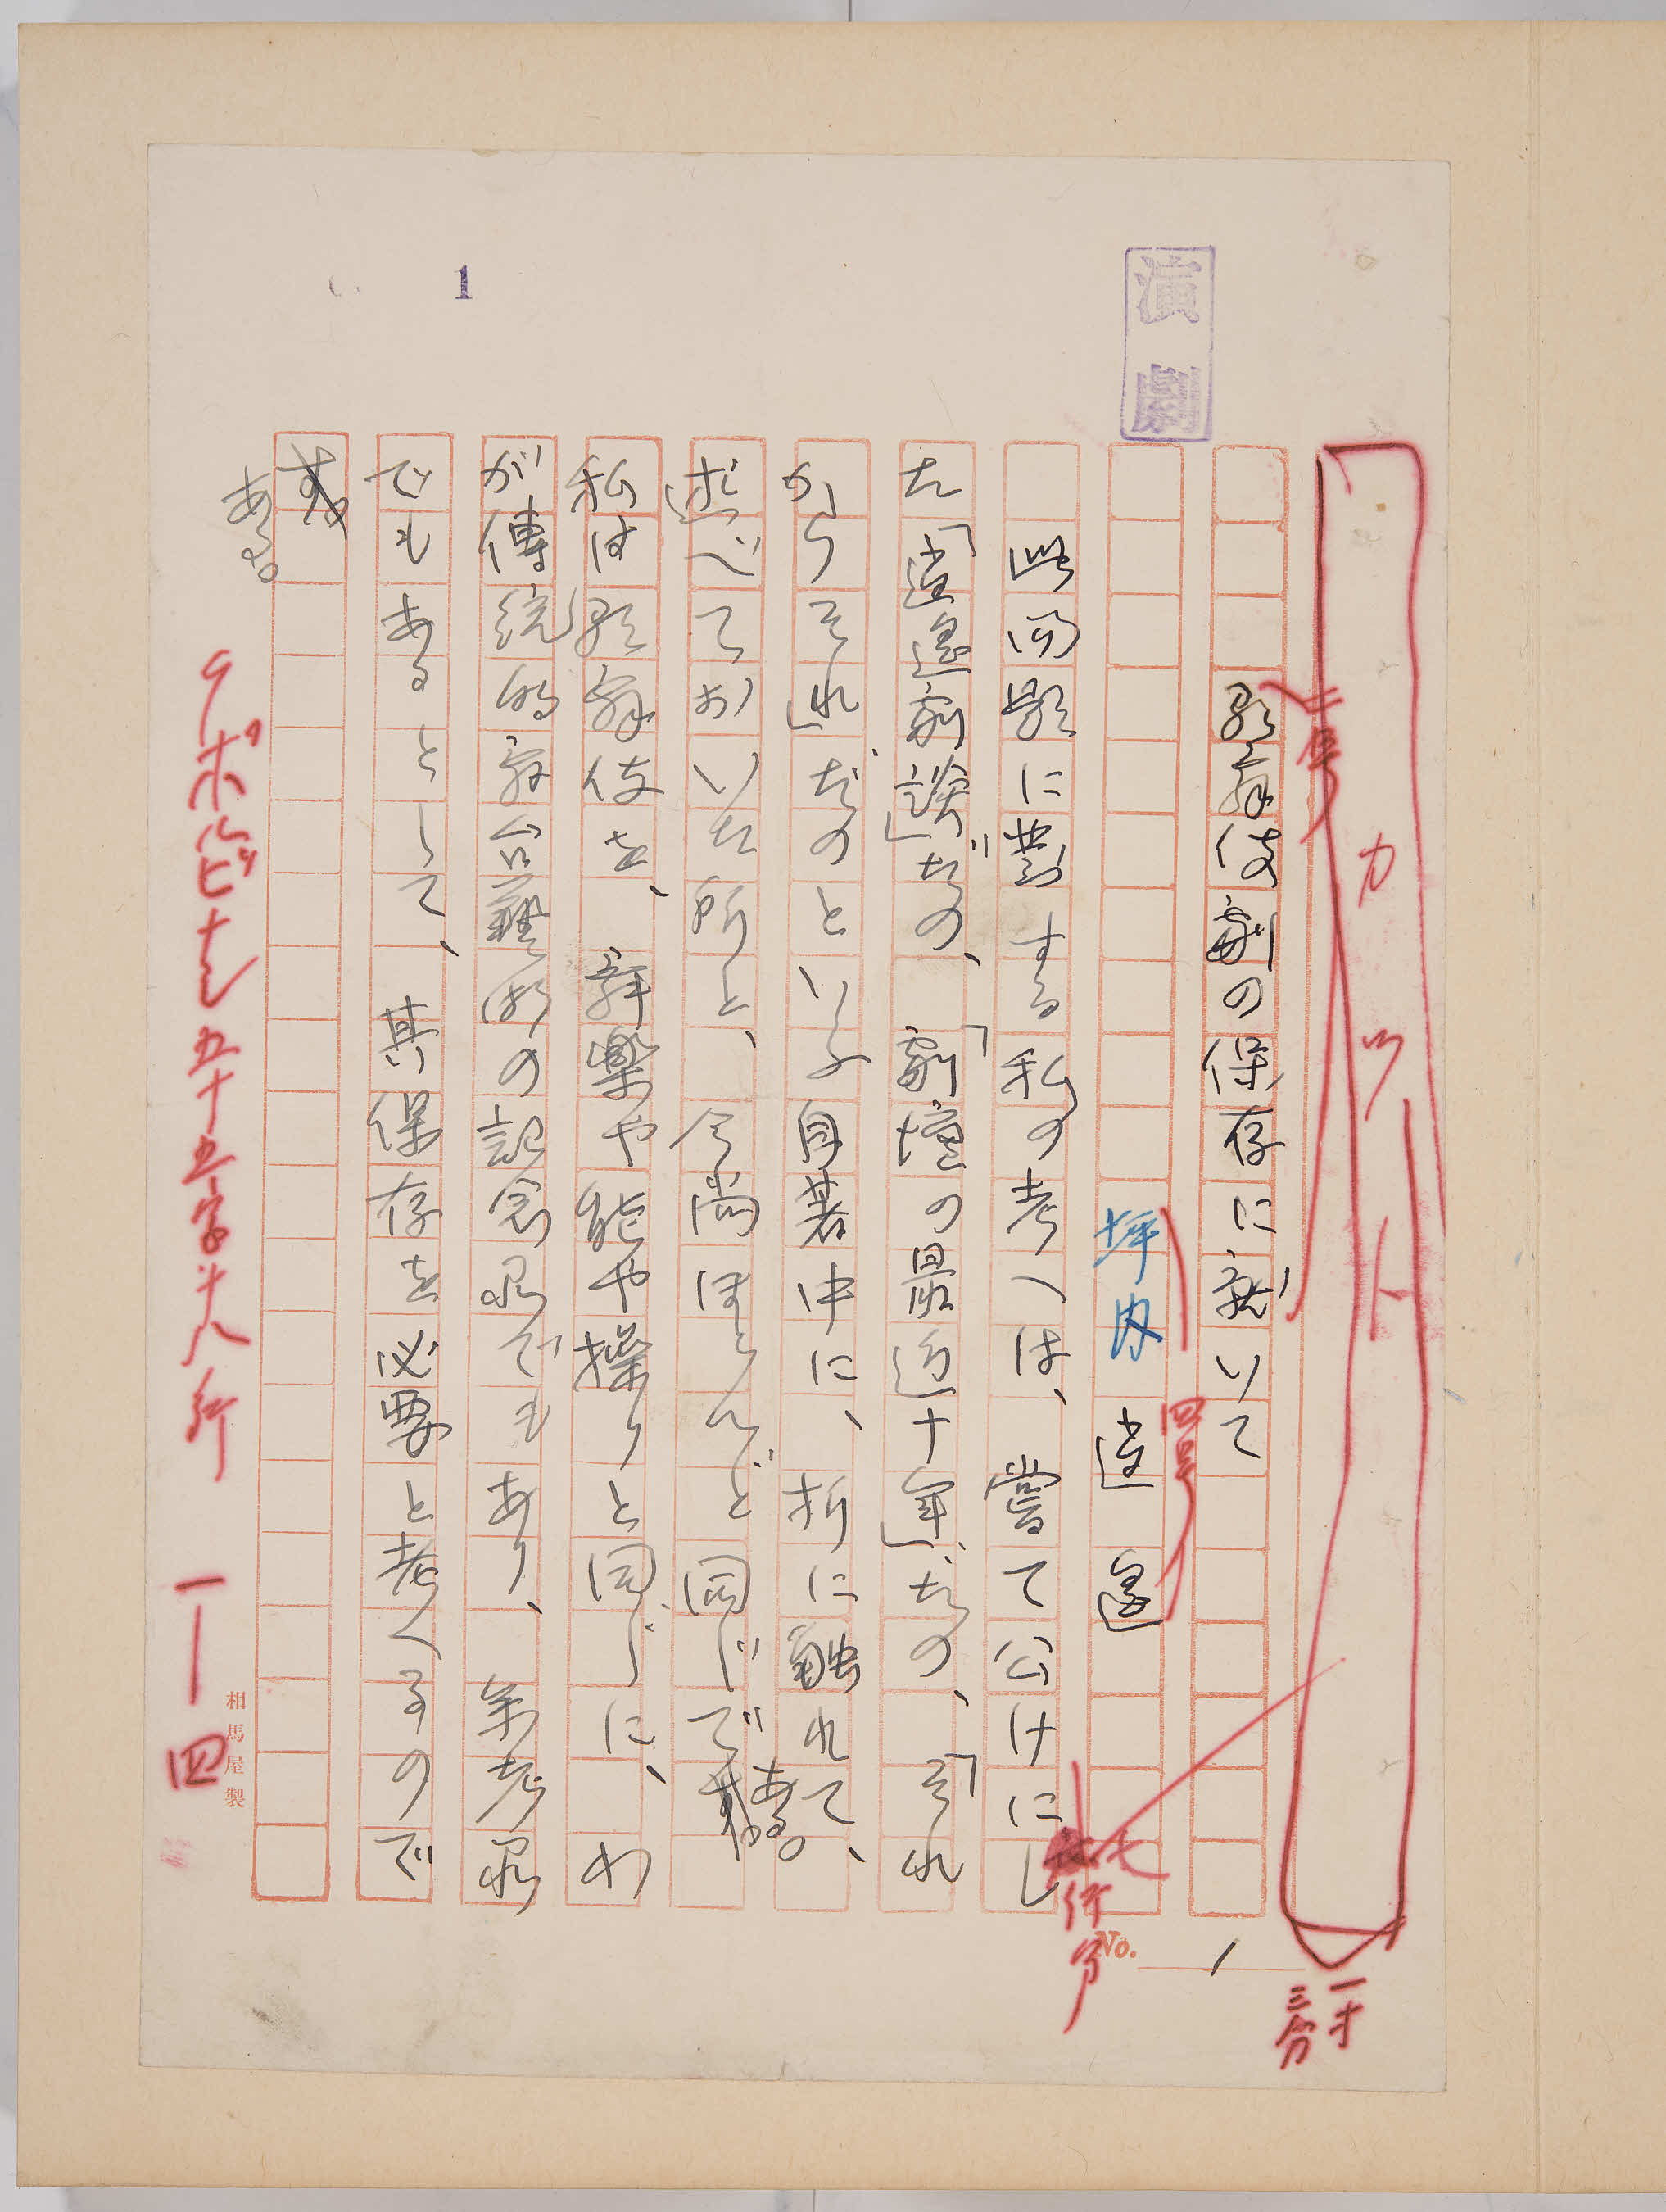 カット
一寸
三分
二号
歌舞伎劇の保存に就いて
演劇
坪内逍遙
四号
七
行分
此問題に對する私の考へは、嘗て公けにし
た「逍遙劇談」だの、「劇壇の最近十年」だの、「それ
からそれ」だのといふ自著中に、折に触れて、
述べておいた所と、今尚ほとんど同じである。
私は歌舞伎を、舞楽や能や操りと同じに、わ
が傳統的舞台藝術の記念品でもあり、参考品
でもあるとして、其保存を必要と考へるので
ある。
1
9ポ 五十五字十八行 一—四
相馬屋製
No. 1